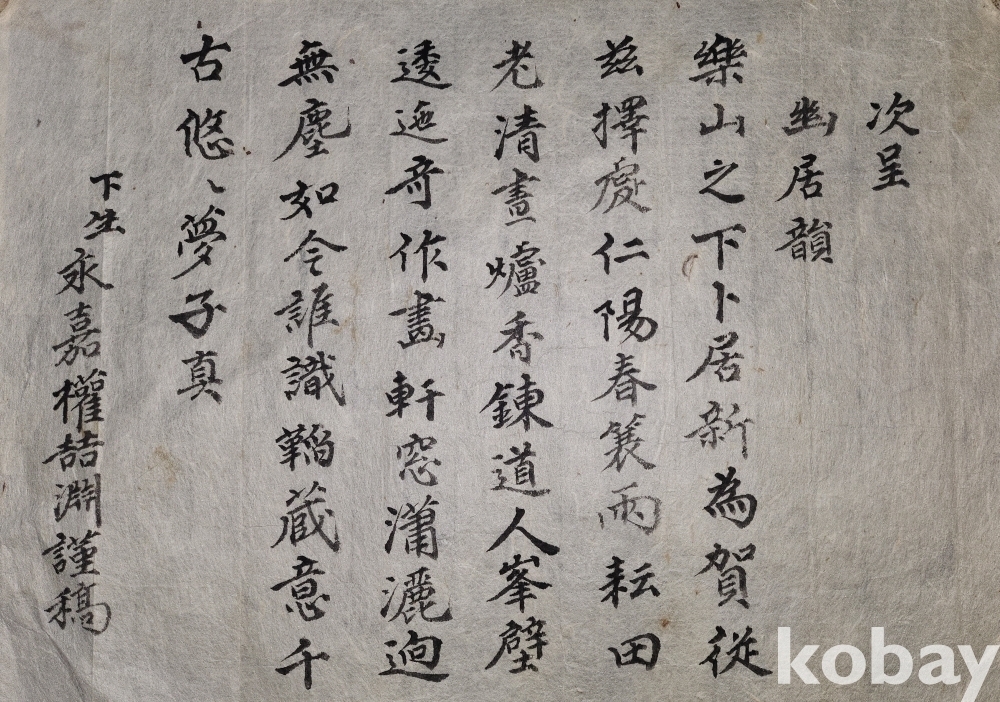 次呈
幽居韻
樂山之下卜居新為賀從
茲擇處仁陽春簑雨耘田
老清晝爐香鍊道人峯壁
逶迤奇作畵軒窓瀟灑逈
無塵如今誰識韜蔵意千
古悠〻夢子真
下生 永嘉權喆淵謹稿
kobay